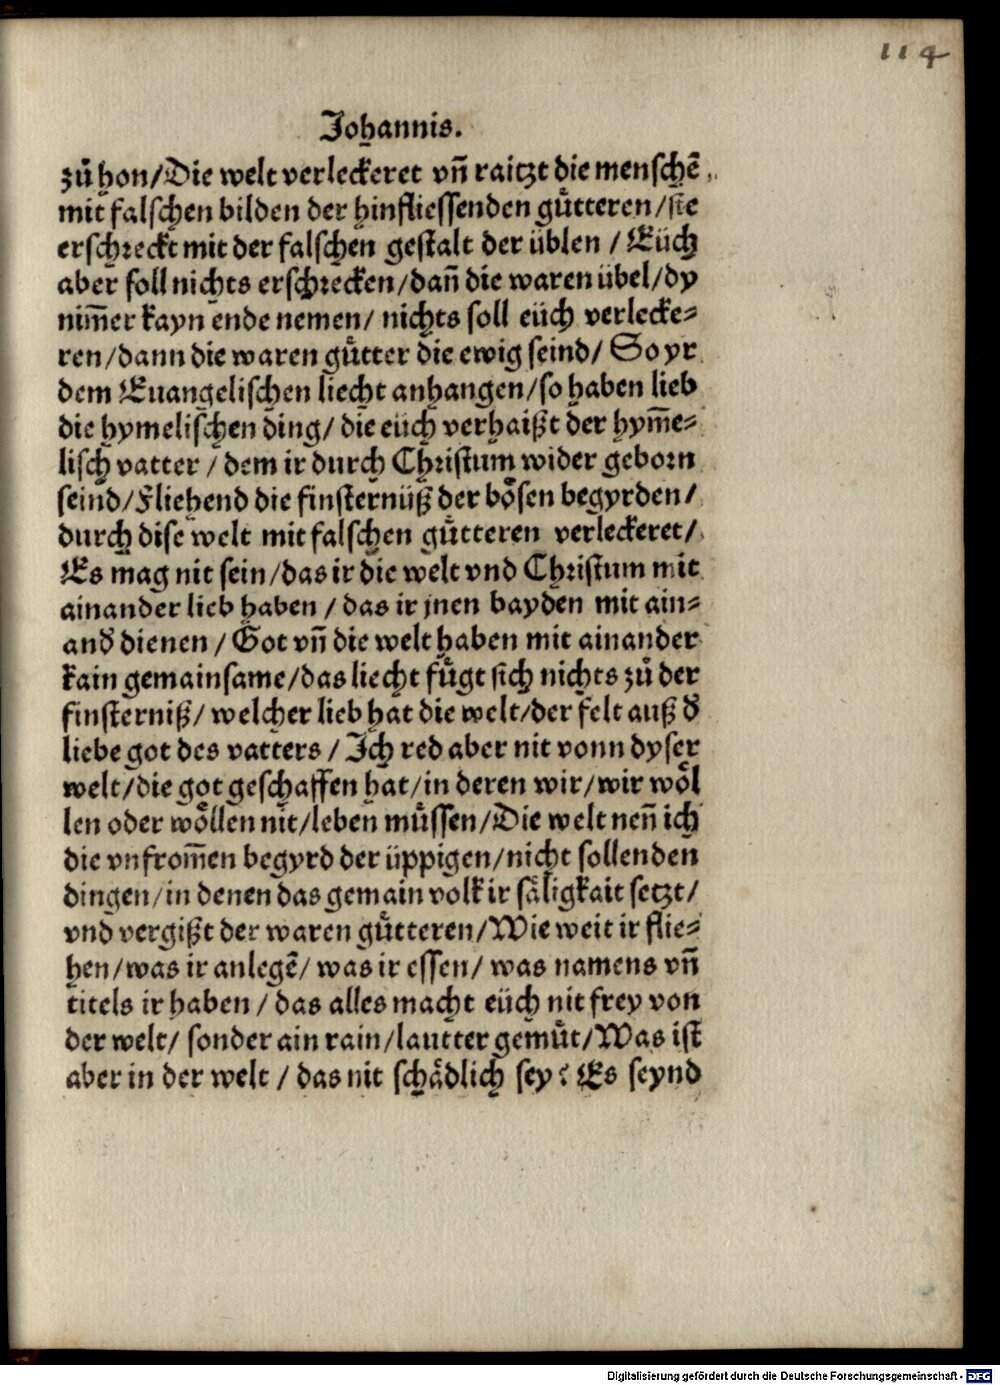 114
Johannis.
zů hon/Die welt verleckeret vñ raitzt die menschē
mit falschen bilden der hinfliessenden gůtteren/sie
erschreckt mit der falschen gestalt der üblen / Eüch
aber soll nichts erschrecken/dañ die waren übel/dy
nim̄er kayn ende nemen/ nichts soll eüch verlecke⸗
ren/dann die waren gůtter die ewig seind/ So yr
dem Euangelischen liecht anhangen/so haben lieb
die hymelischen ding/ die eüch verhaißt der hym̄e⸗
lisch vatter / dem ir durch Christum wider geborn
seind/Fliehend die finsternüß der bösen begyrden/
durch dise welt mit falschen gůtteren verleckeret/
Es mag nit sein/das ir die welt vnd Christum mit
ainander lieb haben / das ir jnen bayden mit ain⸗
and̕ dienen / Got vñ die welt haben mit ainander
kain gemainsame/das liecht fůgt sich nichts zů der
finsterniß/ welcher lieb hat die welt/der felt auß d̕
liebe got des vatters / Ich red aber nit vonn dyser
welt/die got geschaffen hat/in deren wir/wir wöl
len oder wöllen nit/leben můssen/Die welt neñ ich
die vnfrom̄en begyrd der üppigen/nicht sollenden
dingen/in denen das gemain volk ir säligkait setzt/
vnd vergißt der waren gůtteren/Wie weit ir flie⸗
hen/was ir anlegē/ was ir essen/ was namens vñ
titels ir haben / das alles macht eüch nit frey von
der welt/ sonder ain rain/lautter gemůt/Was ist
aber in der welt / das nit schädlich sey? Es seynd
Digitalisierung gefördert durch die Deutsche Forschungsgemeinschaft - DFG